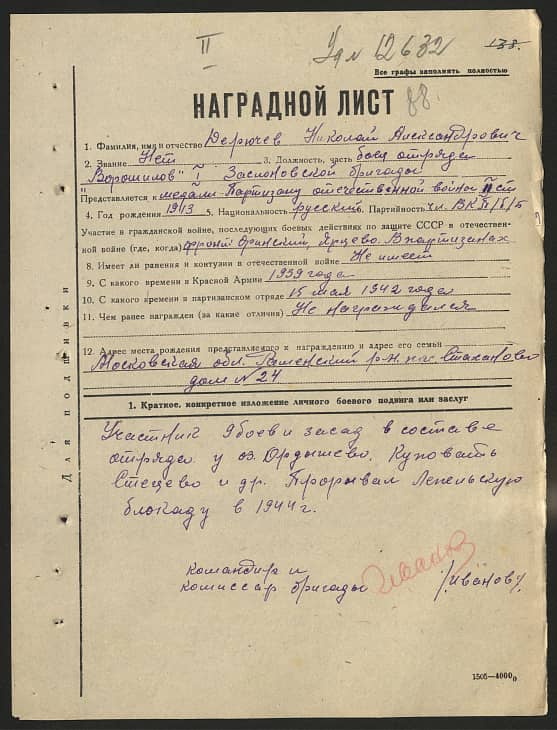 II
Уд № 12632
138.
Все графы заполнять полностью
НАГРАДНОЙ ЛИСТ 88.
1. Фамилия, имя и отчество Дерючев Николай Александрович
2. Звание Нет 3. Должность, часть боец отряда
"Ворошилов" I Заслоновской бригады
Представляется к медали Партизану отечественной войны II ст
4. Год рождения 1913 5. Национальность русский 6. Партийность чл. ВКП/б/б
Участие в гражданской войне, последующих боевых действиях по защите СССР в отечествен-
ной войне (где, когда) фронт Финский, Ярцево. В партизанах
8. Имеет ли ранения и контузии в отечественной войне Не имеет
9. С какого времени в Красной Армии 1939 года
10. С какого времени в партизанском отряде 15 мая 1942 года
11. Чем ранее награжден (за какие отличия) Не награждался
12. Адрес места рождения представляемого к награждению и адрес его семьи
Московская обл. Раменский р-н. Стаханово
дом № 24
Для подшивки
1. Краткое, конкретное изложение личного боевого подвига или заслуг
Участник 9 боев и засад в составе
отряда у оз. Ордышево, Куповать
Стецево и др. Прорывал Лепельскую
блокаду в 1944 г.
Командир и
комиссар бригады Иванов /Иванов/.
1505—4000